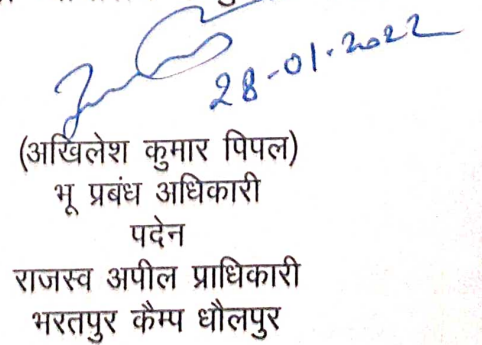 28-01-2022
(अखिलेश कुमार पिपल)
भू प्रबंध अधिकारी
पदेन
राजस्व अपील प्राधिकारी
भरतपुर कैम्प धौलपुर